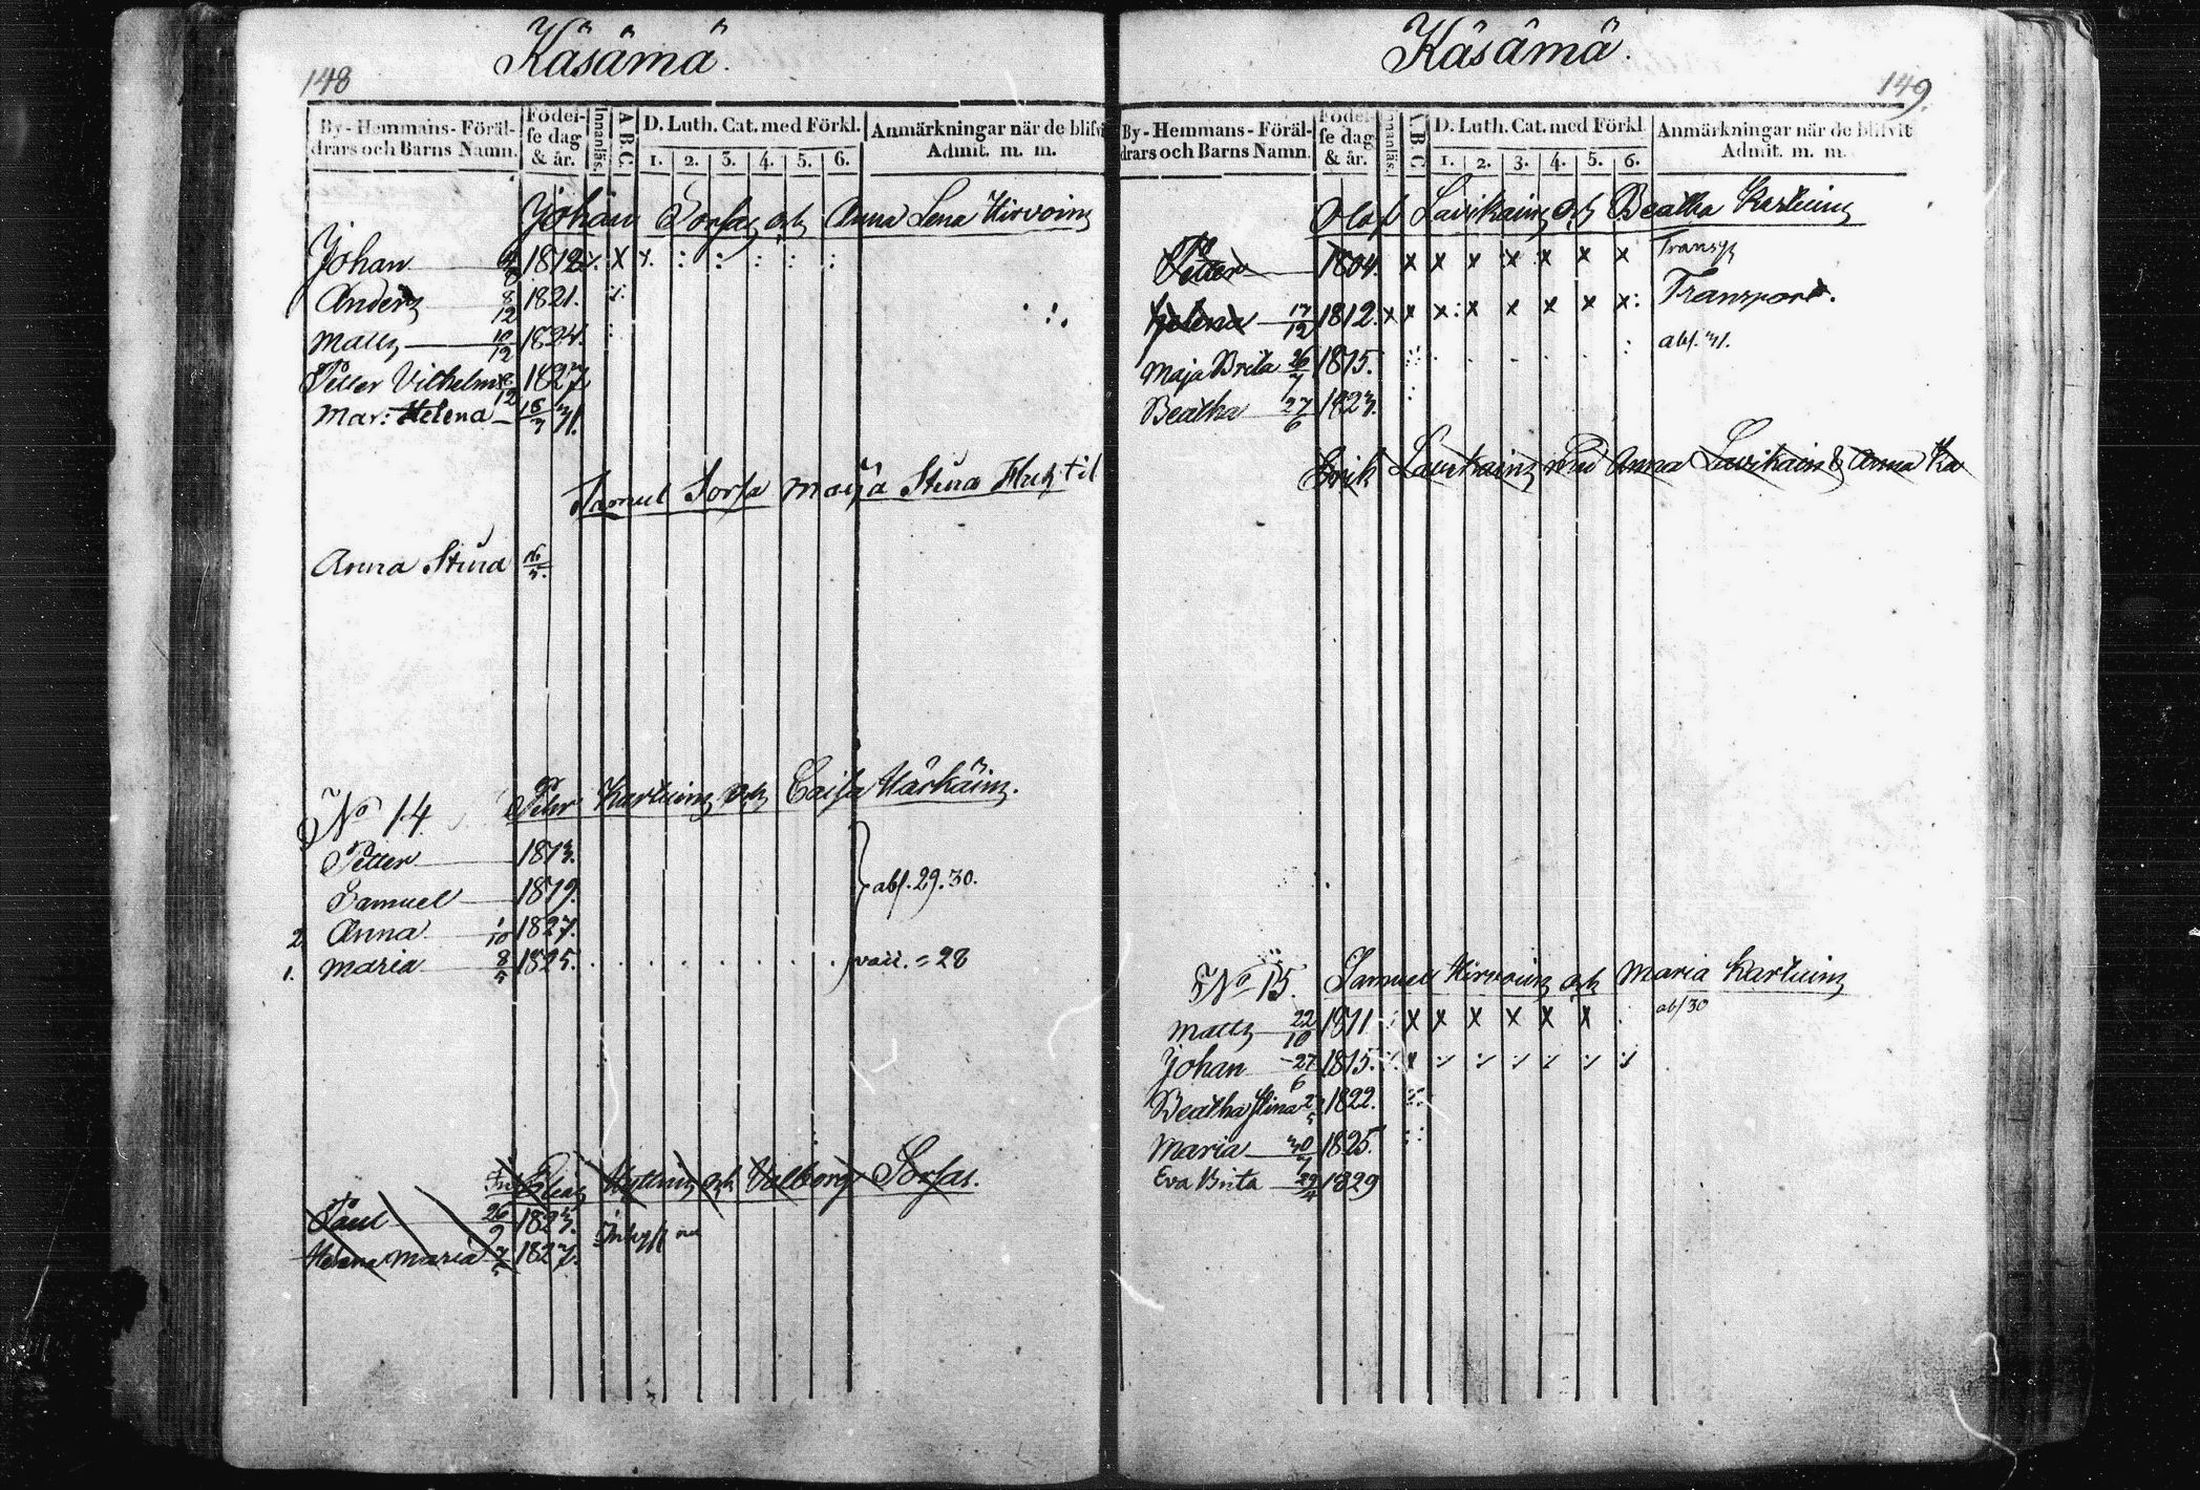 148
Käsämä.
By-Hemmans-Föräl-
drars och Barns Namn.
Födel-
se dag
& år.
Innanläs.
A B C.
D. Luth. Cat. med Förkl.
1. 2. 3. 4. 5. 6.
Anmärkningar när de blifvi
Admit. m. m.
Johan Sorsa och Anna Lena Hirvoin
Johan 1812
Anders 8/12 1821.
Matts 10/12 1824.
Petter Vilhelm 12 1827
Mar: Helena 31.
Samuel Sorsa Maija Stina
Anna Stina
No 14. Petter Karhuin och Caisa Härkäin.
Petter 1813.
Samuel 1819.
abs. 29. 30.
2 Anna 1/10 1827.
1. Maria 8/5 1825. vacc. = 28
Elias och Valborg Sorsa.
Paul 26/9 1823.
Helena Maria 1827.
149.
Käsämä.
By-Hemmans-Föräl-
drars och Barns Namn.
Födel-
se dag
& år.
Innanläs.
A B C
D. Luth. Cat. med Förkl
1. 2. 3. 4. 5. 6.
Anmärkningar när de blifvit
Admit. m. m.
Olof Lavikain och Beatha Karhuin
Petter 1804. x x x x x x x Transp
Helena 17/12 1812. x x x x x x x x Transport.
Maja Brita 26/7 1815. abs. 31.
Beatha 27/6 1823.
Erik Lavikain Anna Lavikain & Anna Ka
No 15. Samuel Hirvoin och Maria Karhuin
Matts 22/10 1811 x x x x x x abs 30
Johan 27/6 1815.
Beatha Stina 1822.
Maria 30/7 1825
Eva Brita 29/4 1829